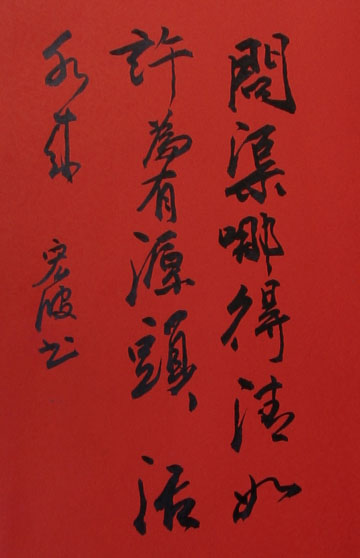 問渠哪得清如
許為有源頭活
水来
宏波书